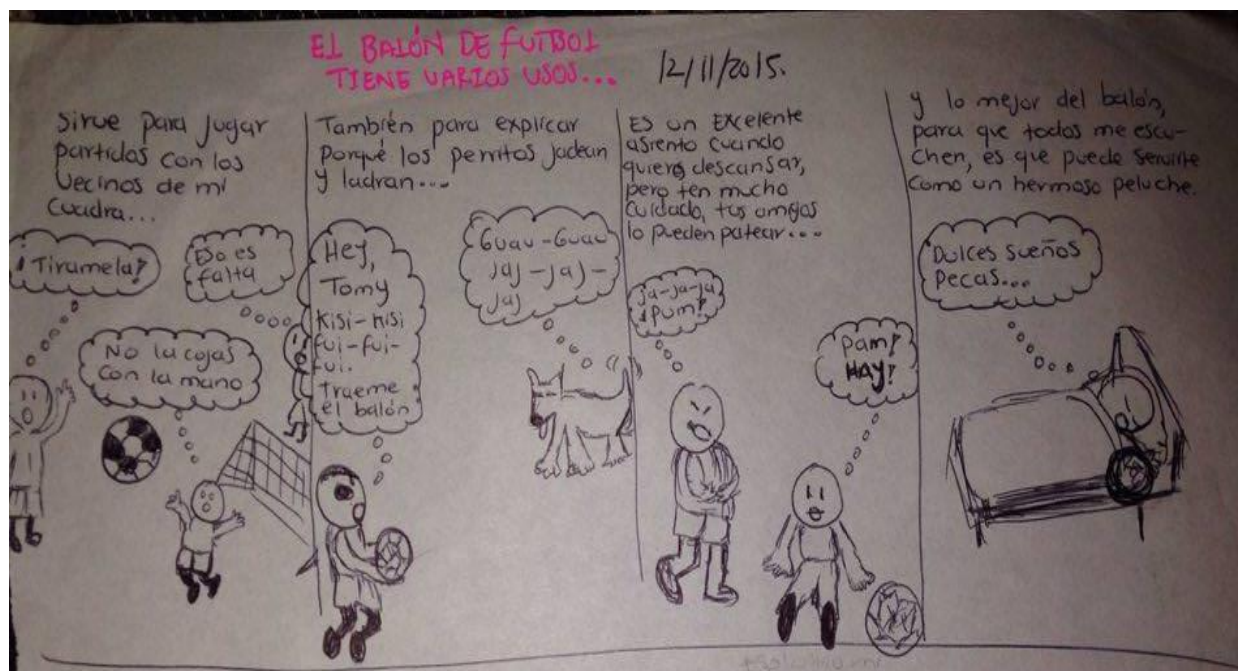 EL BALÓN DE FUTBOL
TIENE VARIOS USOS...
12/11/2015.
Sirve para jugar
partidos con los
vecinos de mi
cuadra...
¡Tiramela!
Eso es
falta
No la cojas
con la mano
También para explicar
porqué los perritos jadean
y ladran...
Hey,
Tomy
Kisi-Kisi
fui-fui-
fui.
Traeme
el balón
Guau-Guau
jaj-jaj-
jaj
ES un Excelente
asiento cuando
quieres descansar,
pero ten mucho
cuidado, tus amigos
lo pueden patear...
ja-ja-ja
¡pum!
pam!
HAY!
y lo mejor del balón,
para que todos me escu-
chen, es que puede servirte
como un hermoso peluche.
Dulces sueños
pecas...